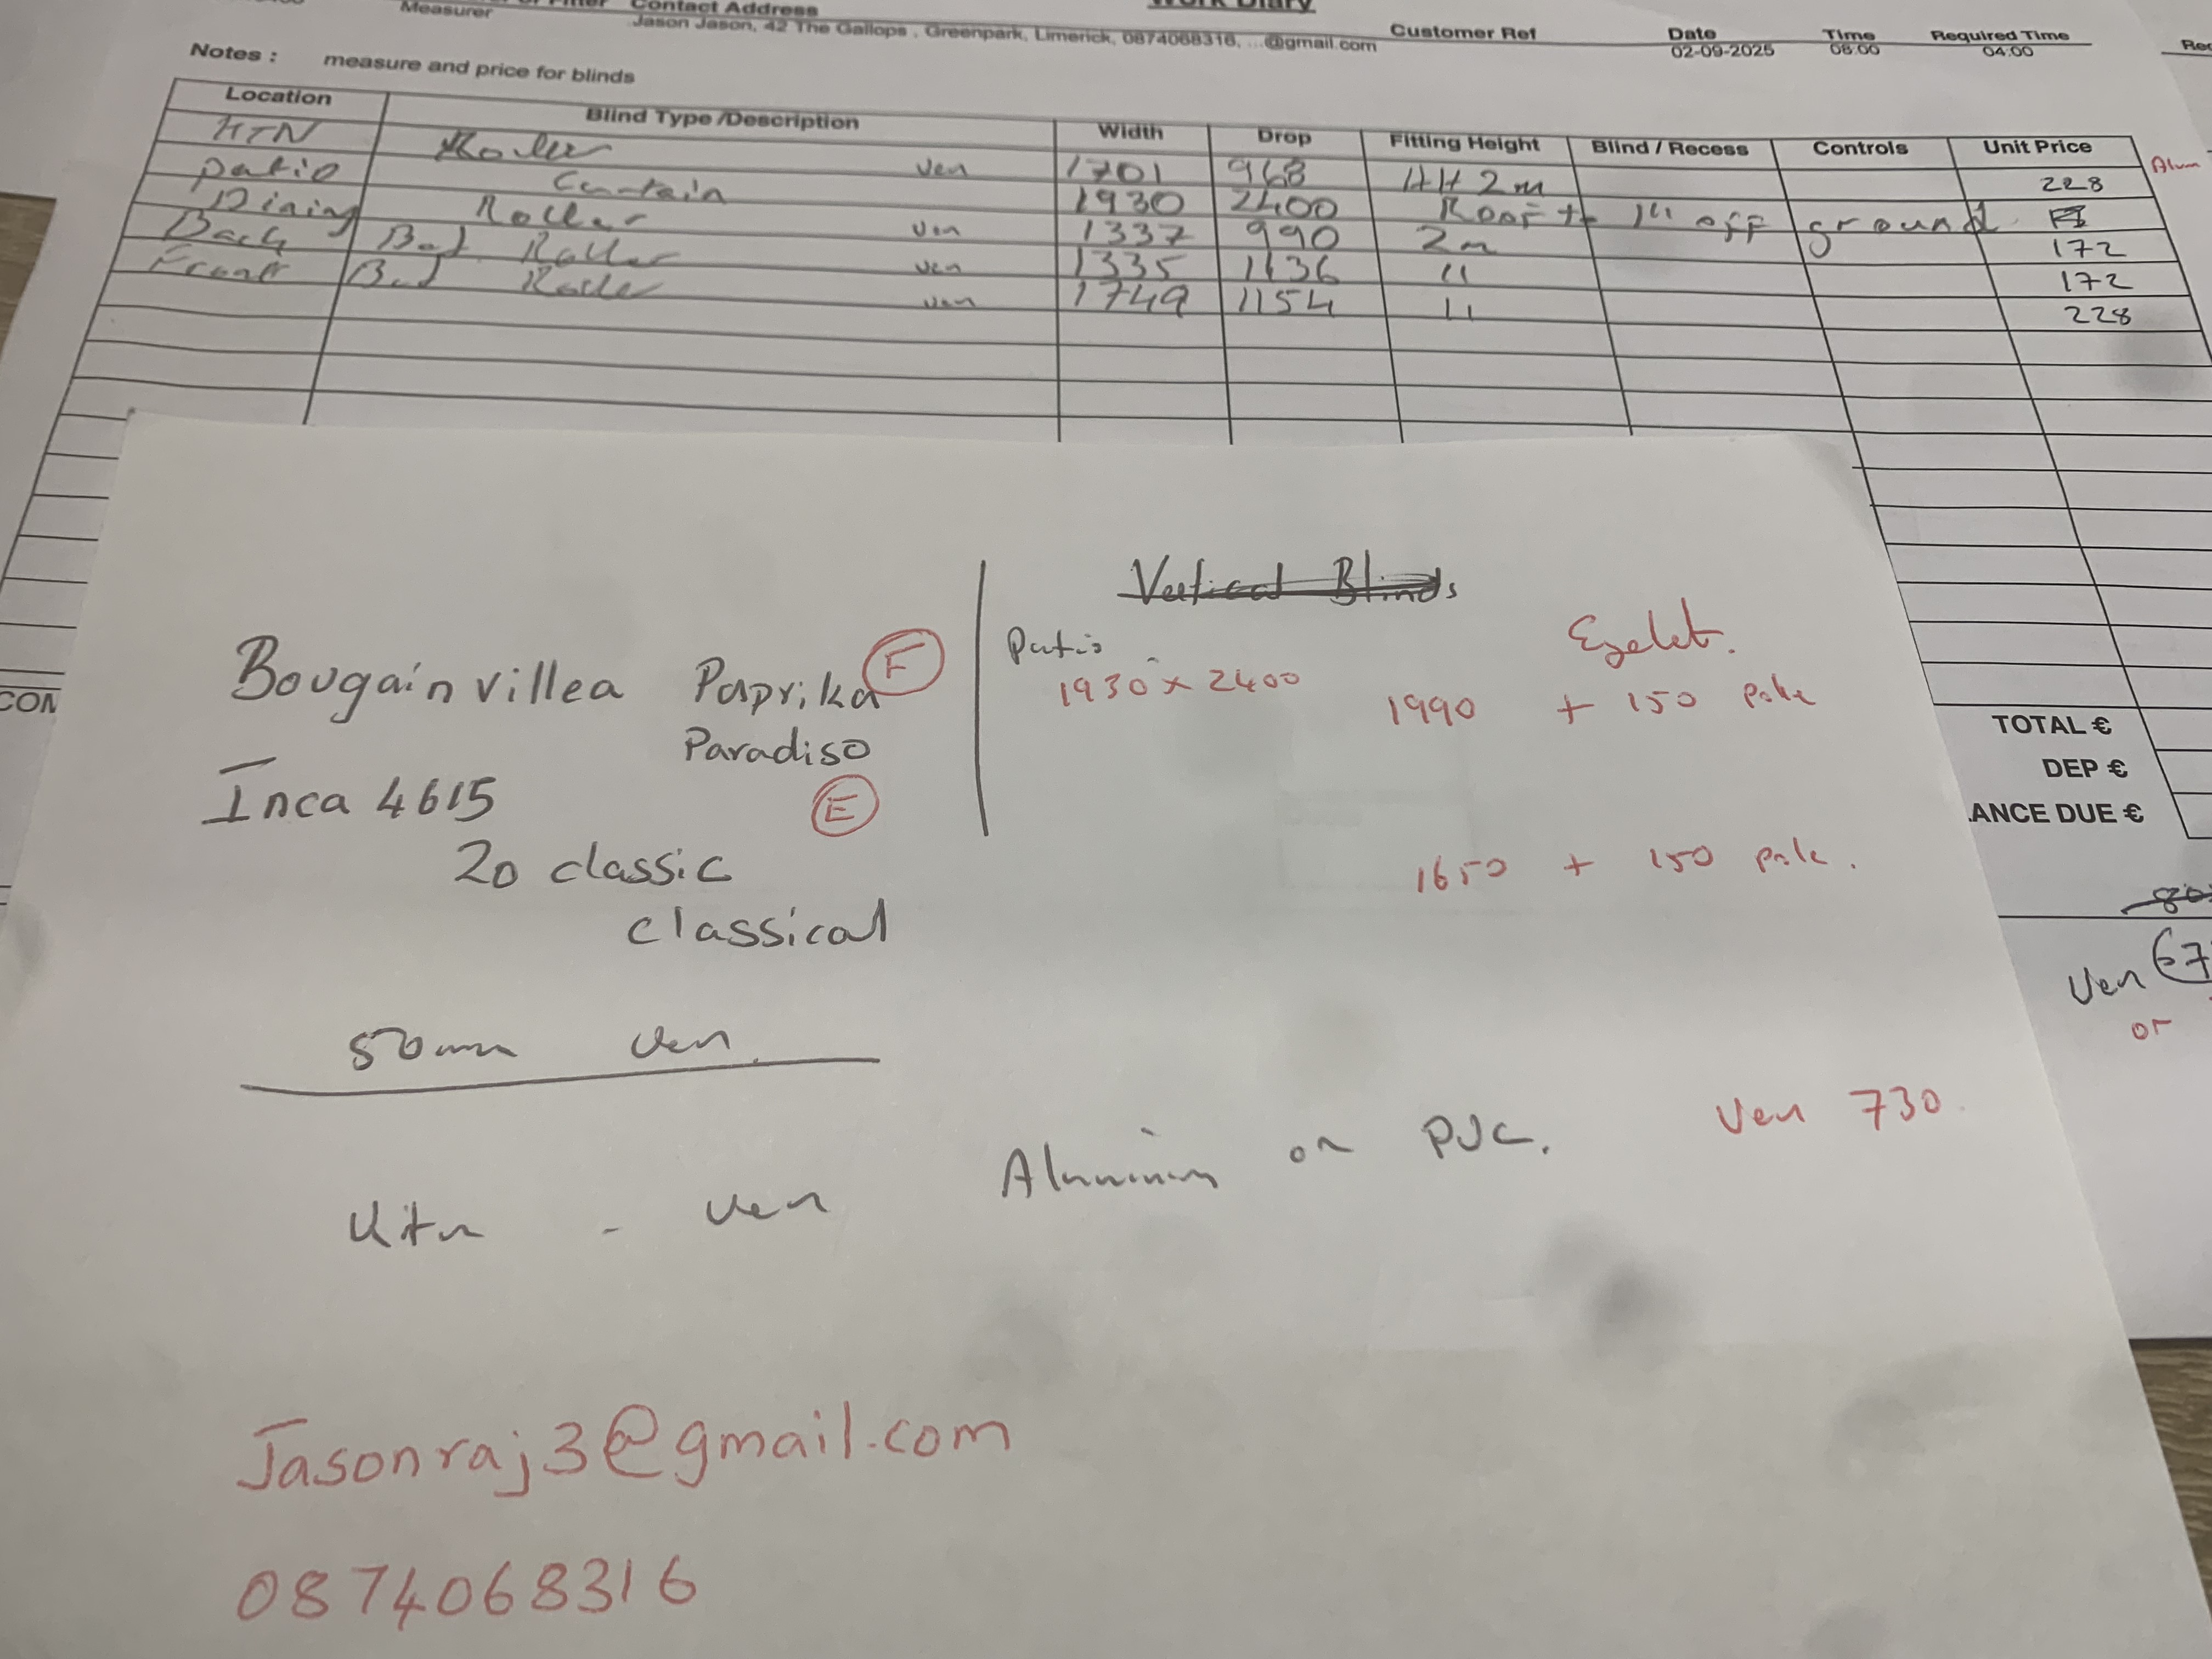 Work Diary
Measurer Contact Address Customer Ref Date Time Required Time
Jason Jason, 42 The Gallops , Greenpark, Limerick, 0874068316, ...@gmail.com 02-09-2025 08:00 04:00
Notes : measure and price for blinds
Location Blind Type /Description Width Drop Fitting Height Blind / Recess Controls Unit Price
KTN Roller ven 1701 968 HH 2m 228 Alum
Patio Curtain 1930 2400 Roof to 1" off ground
Dining Roller ven 1337 990 2m 172
Back Bed Roller ven 1335 1136 11 172
Front Bed Roller ven 1749 1154 11 228
Vertical Blinds
Patio Eyelet.
Bougainvillea Paprika F 1930 x 2400 1990 + 150 pole
Paradiso
Inca 4615 E
20 classic 1650 + 150 pole.
classical
CON
TOTAL €
DEP €
ANCE DUE €
Ven 67
or
50mm ven.
Ven 730
Kitn - ven Aluminium or PVC.
Jasonraj3@gmail.com
0874068316